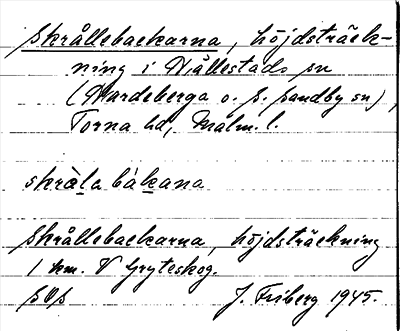 Skrållebackarna, höjdsträck-
ning i Vållestads sn
(Hardeberga o. S. Sandby sn),
Torna hd, Malm. l.
skråla bakana
Skrållebackarna, höjdsträckning
1 km. V Gryteskog.
SOS J. Friberg 1945.